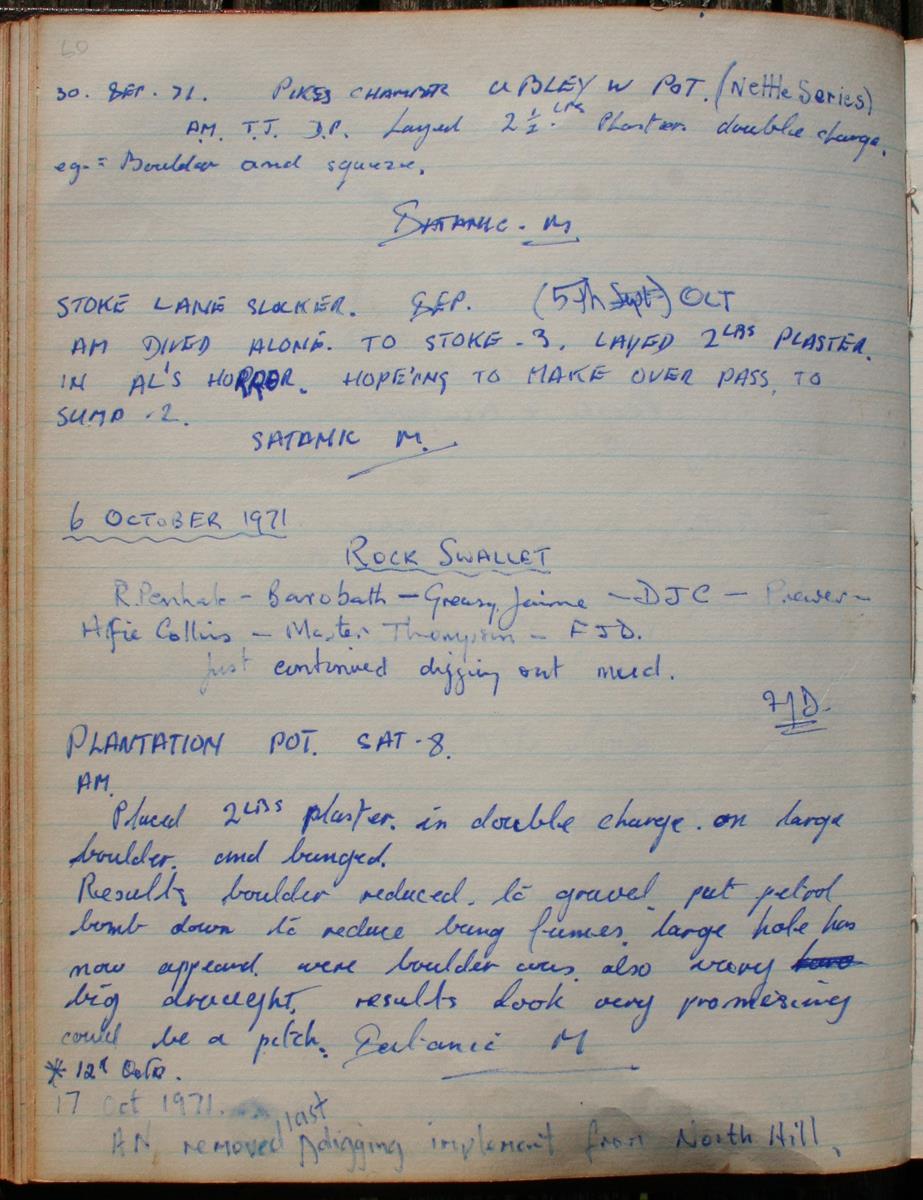 60
30. SEP. 71. PIKES CHAMBER UBLEY W POT. (Nettle Series)
AM. T.J. D.P. Layed 2½ LBS Plaster double charge.
eg = Boulder and squeeze.
SATANIC. M
STOKE LANE SLOCKER. SEP. (5th Sept) OCT
AM DIVED ALONE. TO STOKE-3. LAYED 2LBS PLASTER.
IN AL'S HORROR. HOPE'ING TO MAKE OVER PASS, TO
SUMP -2.
SATANIK M.
6 OCTOBER 1971
ROCK SWALLET
R. Penhale - Barobath - Greasy Jaime - DJC - Prewer -
Alfie Collins - Master Thompson - FJD.
just continued digging out mud.
FJD.
PLANTATION POT. SAT-8.
AM.
Placed 2LBS plaster. in double charge. on large
boulder. and banged.
Results boulder reduced. to gravel. put petrol
bomb down to reduce bang fumes. large hole has
now appeard. were boulder was. also very have
big draught, results look very promesing
could be a pitch. Satanic M
* 12th Octo.
17 Oct 1971.
AN removed last digging implement from North Hill.